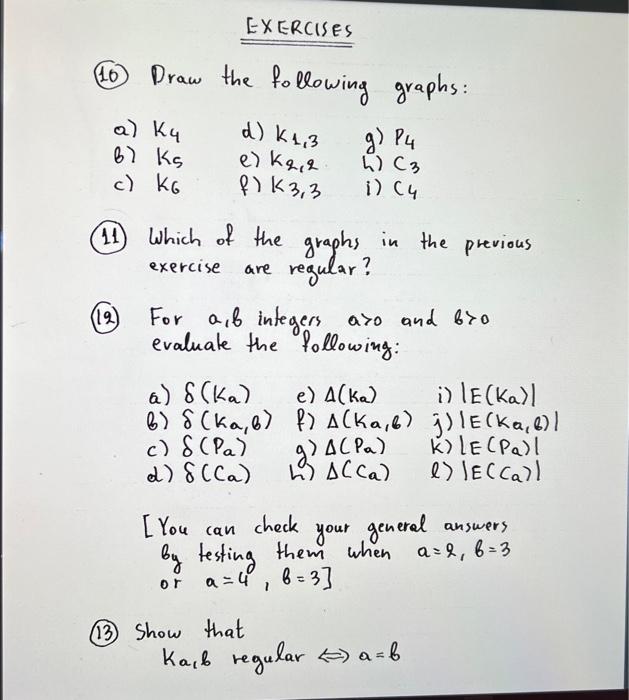 EXERCISES
(10) Draw the following graphs:
a) K₄ d) K₁,₃ g) P₄
b) K₅ e) K₂,₂ h) C₃
c) K₆ f) K₃,₃ i) C₄
(11) Which of the graphs in the previous
exercise are regular?
(12) For a,b integers a>0 and b>0
evaluate the following:
a) δ(Ka) e) Δ(Ka) i) |E(Ka)|
b) δ(Ka,b) f) Δ(Ka,b) j) |E(Ka,b)|
c) δ(Pa) g) Δ(Pa) k) |E(Pa)|
d) δ(Ca) h) Δ(Ca) l) |E(Ca)|
[You can check your general answers
by testing them when a=2, b=3
or a=4, b=3]
(13) Show that
Ka,b regular ⇔ a=b